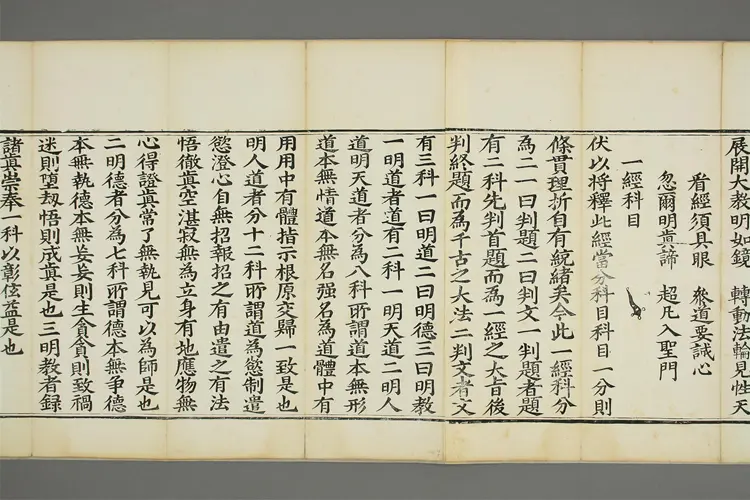 展開大教明如鏡　轉動法輪見性天
看經須具眼　參道要誠心
忽爾明真諦　超凡入聖門
一經科目
伏以将釋此經當分科目科目一分則
條貫理析自有統緒矣今此一經科分
為二一曰判題二曰判文一判題者題
有二科先判首題而為一經之大旨後
判終題而為千古之大法二判文者文
有三科一曰明道二曰明德三曰明教
一明道者道有二科一明天道二明人
道明天道者分為八科所謂道本無形
道本無情道本無名强名為道體中有
用用中有體指示根原交歸一致是也
明人道者分十二科所謂道為慾制遣
慾澄心自無招報招之有由遣之有法
悟徹真空湛寂無為立身有地應物無
心得證真常了無執見可以為師是也
二明德者分為七科所謂德本無争德
本無執德本無妄妄則生貪貪則致禍
迷則墮劫悟則成真是也三明教者録
諸真崇奉一科以彰弦益是也